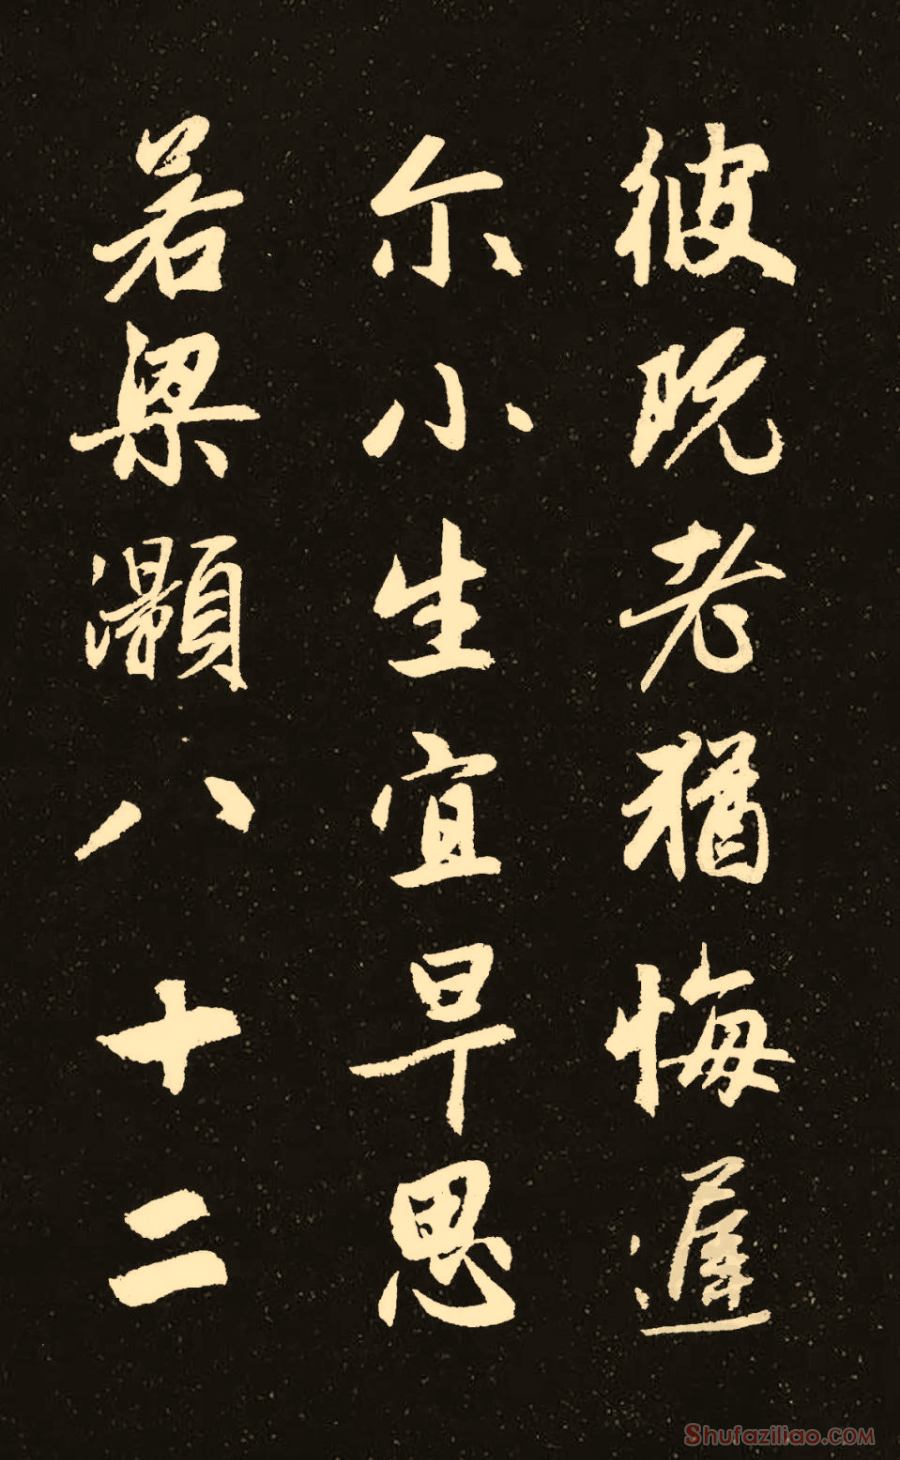 彼既老猶悔遲
尒小生宜早思
若梁灝八十二
Shufaziliao.COM